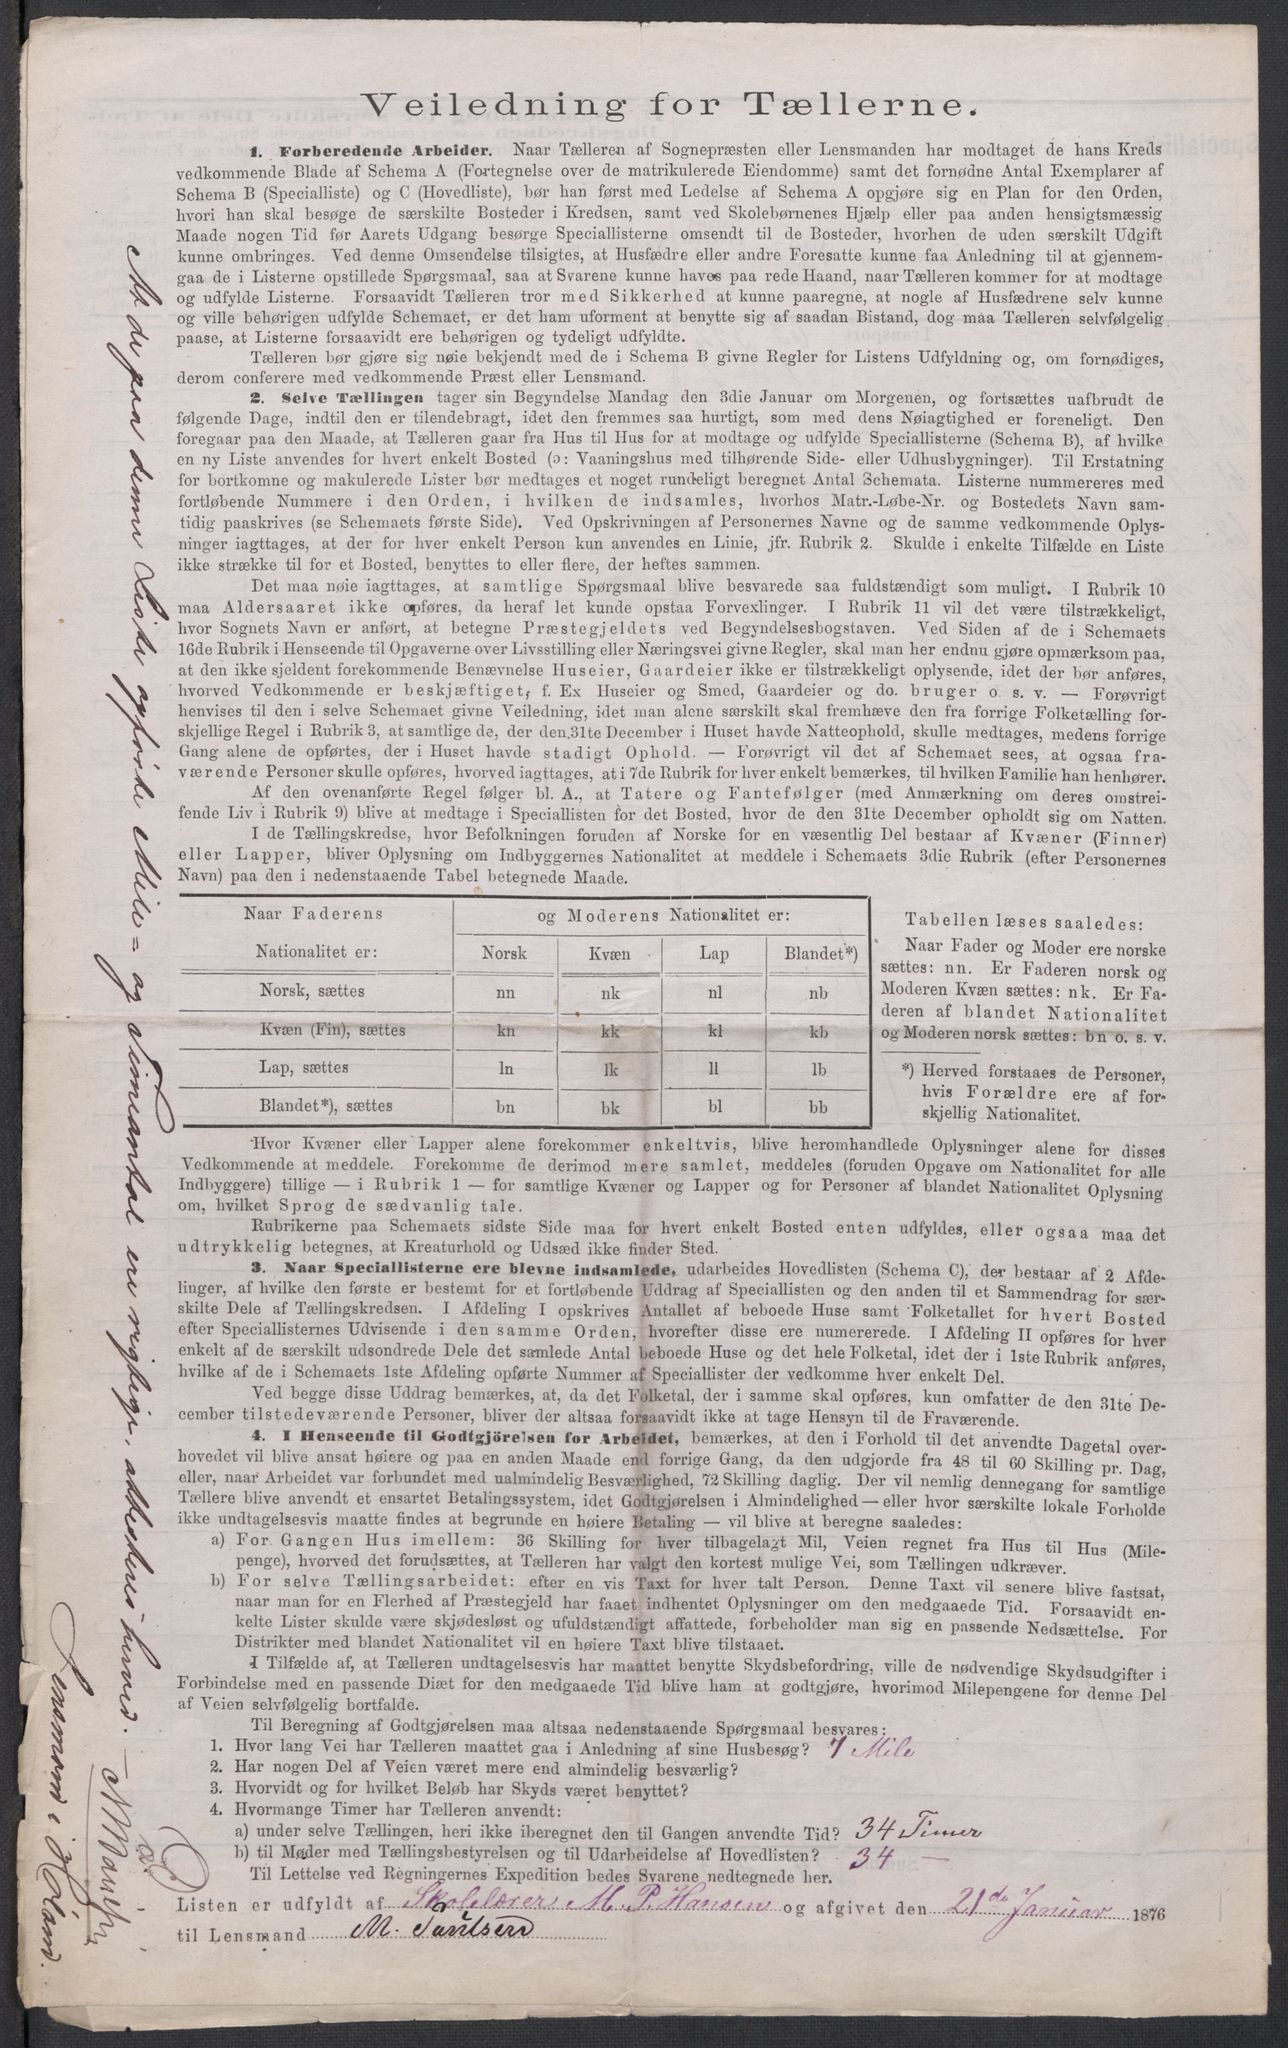 Veiledning for Tællerne.
1. Forberedende Arbeider. Naar Tælleren af Sognepræsten eller Lensmanden har modtaget de hans Kreds
vedkommende Blade af Schema A (Fortegnelse over de matrikulerede Eiendomme) samt det fornødne Antal Exemplarer af
Schema B (Specialliste) og C (Hovedliste), bør han først med Ledelse af Schema A opgjøre sig en Plan for den Orden,
hvori han skal besøge de særskilte Bosteder i Kredsen, samt ved Skolebørnenes Hjælp eller paa anden hensigtsmæssig
Maade nogen Tid før Aarets Udgang besørge Speciallisterne omsendt til de Bosteder, hvorhen de uden særskilt Udgift
kunne ombringes. Ved denne Omsendelse tilsigtes, at Husfædre eller andre Foresatte kunne faa Anledning til at gjennem-
gaa de i Listerne opstillede Spørgsmaal, saa at Svarene kunne haves paa rede Haand, naar Tælleren kommer for at modtage
og udfylde Listerne. Forsaavidt Tælleren tror med Sikkerhed at kunne paaregne, at nogle af Husfædrene selv kunne
og ville behørigen udfylde Schemaet, er det ham uforment at benytte sig af saadan Bistand, dog maa Tælleren selvfølgelig
paase, at Listerne forsaavidt ere behørigen og tydeligt udfyldte.
Tælleren bør gjøre sig nøie bekjendt med de i Schema B givne Regler for Listens Udfyldning og, om fornødiges,
derom conferere med vedkommende Præst eller Lensmand.
2. Selve Tællingen tager sin Begyndelse Mandag den 3die Januar om Morgenen, og fortsættes uafbrudt de
følgende Dage, indtil den er tilendebragt, idet den fremmes saa hurtigt, som med dens Nøiagtighed er foreneligt. Den
foregaar paa den Maade, at Tælleren gaar fra Hus til Hus for at modtage og udfylde Speciallisterne (Schema B), af hvilke
en ny Liste anvendes for hvert enkelt Bosted (ɔ: Vaaningshus med tilhørende Side- eller Udhusbygninger). Til Erstatning
for bortkomne og makulerede Lister bør medtages et noget rundeligt beregnet Antal Schemata. Listerne nummereres med
fortløbende Nummere i den Orden, i hvilken de indsamles, hvorhos Matr.-Løbe-Nr. og Bostedets Navn sam-
tidig paaskrives (se Schemaets første Side). Ved Opskrivningen af Personernes Navne og de samme vedkommende Oplys-
ninger iagttages, at der for hver enkelt Person kun anvendes en Linie, jfr. Rubrik 2. Skulde i enkelte Tilfælde en Liste
ikke strække til for et Bosted, benyttes to eller flere, der heftes sammen.
Det maa nøie iagttages, at samtlige Spørgsmaal blive besvarede saa fuldstændigt som muligt. I Rubrik 10
maa Aldersaaret ikke opføres, da heraf let kunde opstaa Forvexlinger. I Rubrik 11 vil det være tilstrækkeligt,
hvor Sognets Navn er anført, at betegne Præstegjeldets ved Begyndelsesbogstaven. Ved Siden af de i Schemaets
16de Rubrik i Henseende til Opgaverne over Livsstilling eller Næringsvei givne Regler, skal man her endnu gjøre opmærksom paa,
at den ikke sjeldent forekommende Benævnelse Huseier, Gaardeier ikke er tilstrækkeligt oplysende, idet der bør anføres,
hvorved Vedkommende er beskjæftiget, f. Ex Huseier og Smed, Gaardeier og do. bruger o. s. v. — Forøvrigt
henvises til den i selve Schemaet givne Veiledning, idet man alene særskilt skal fremhæve den fra forrige Folketælling for-
skjellige Regel i Rubrik 3, at samtlige de, der den 31te December i Huset havde Natteophold, skulle medtages, medens forrige
Gang alene de opførtes, der i Huset havde stadigt Ophold. — Forøvrigt vil det af Schemaet sees, at ogsaa fra-
værende Personer skulle opføres, hvorved iagttages, at i 7de Rubrik for hver enkelt bemærkes, til hvilken Familie han henhører.
Af den ovenanførte Regel følger bl. A., at Tatere og Fantefølger (med Anmærkning om deres omstrei-
fende Liv i Rubrik 9) blive at medtage i Speciallisten for det Bosted, hvor de den 31te December opholdt sig om Natten.
I de Tællingskredse, hvor Befolkningen foruden af Norske for en væsentlig Del bestaar af Kvæner (Finner)
eller Lapper, bliver Oplysning om Indbyggernes Nationalitet at meddele i Schemaets 3die Rubrik (efter Personernes
Navn) paa den i nedenstaaende Tabel betegnede Maade.
Naar Faderens og Moderens Nationalitet er:
Nationalitet er: Norsk Kvæn Lap Blandet*)
Norsk, sættes nn nk nl nb
Kvæn (Fin), sættes kn kk kl kb
Lap, sættes ln lk ll lb
Blandet*), sættes bn bk bl bb
Tabellen læses saaledes:
Naar Fader og Moder ere norske
sættes: nn. Er Faderen norsk og
Moderen Kvæn sættes: nk. Er Fa-
deren af blandet Nationalitet
og Moderen norsk sættes: bn o. s. v.
*) Herved forstaaes de Personer,
hvis Forældre ere af for-
skjellig Nationalitet.
Hvor Kvæner eller Lapper alene forekommer enkeltvis, blive heromhandlede Oplysninger alene for disses
Vedkommende at meddele. Forekomme de derimod mere samlet, meddeles (foruden Opgave om Nationalitet for alle
Indbyggere) tillige — i Rubrik 1 — for samtlige Kvæner og Lapper og for Personer af blandet Nationalitet Oplysning
om, hvilket Sprog de sædvanlig tale.
Rubrikerne paa Schemaets sidste Side maa for hvert enkelt Bosted enten udfyldes, eller ogsaa maa det
udtrykkelig betegnes, at Kreaturhold og Udsæd ikke finder Sted.
3. Naar Speciallisterne ere blevne indsamlede, udarbeides Hovedlisten (Schema C), der bestaar af 2 Afde-
linger, af hvilke den første er bestemt for et fortløbende Uddrag af Speciallisten og den anden til et Sammendrag for sær-
skilte Dele af Tællingskredsen. I Afdeling I opskrives Antallet af beboede Huse samt Folketallet for hvert Bosted
efter Speciallisternes Udvisende i den samme Orden, hvorefter disse ere numererede. I Afdeling II opføres for hver
enkelt af de særskilt udsondrede Dele det samlede Antal beboede Huse og det hele Folketal, idet der i 1ste Rubrik anføres,
hvilke af de i Schemaets 1ste Afdeling opførte Nummer af Speciallister der vedkomme hver enkelt Del.
Ved begge disse Uddrag bemærkes, at, da det Folketal, der i samme skal opføres, kun omfatter de den 31te De-
cember tilstedeværende Personer, bliver der altsaa forsaavidt ikke at tage Hensyn til de Fraværende.
4. I Henseende til Godtgjörelsen for Arbeidet, bemærkes, at den i Forhold til det anvendte Dagetal over-
hovedet vil blive ansat høiere og paa en anden Maade end forrige Gang, da den udgjorde fra 48 til 60 Skilling pr. Dag,
eller, naar Arbeidet var forbundet med ualmindelig Besværlighed, 72 Skilling daglig. Der vil nemlig dennegang for samtlige
Tællere blive anvendt et ensartet Betalingssystem, idet Godtgjørelsen i Almindelighed — eller hvor særskilte lokale Forholde
ikke undtagelsesvis maatte findes at begrunde en høiere Betaling — vil blive at beregne saaledes:
a) For Gangen Hus imellem: 36 Skilling for hver tilbagelagt Mil, Veien regnet fra Hus til Hus (Mile-
penge), hvorved det forudsættes, at Tælleren har valgt den kortest mulige Vei, som Tællingen udkræver.
b) For selve Tællingsarbeidet: efter en vis Taxt for hver talt Person. Denne Taxt vil senere blive fastsat,
naar man for en Flerhed af Præstegjeld har faaet indhentet Oplysninger om den medgaaede Tid. Forsaavidt en-
kelte Lister skulde være skjødesløst og ufuldstændigt affattede, forbeholder man sig en passende Nedsættelse. For
Distrikter med blandet Nationalitet vil en høiere Taxt blive tilstaaet.
I Tilfælde af, at Tælleren undtagelsesvis har maattet benytte Skydsbefordring, ville de nødvendige Skydsudgifter i
Forbindelse med en passende Diæt for den medgaaede Tid blive ham at godtgjøre, hvorimod Milepengene for denne Del
af Veien selvfølgelig bortfalde.
Til Beregning af Godtgjørelsen maa altsaa nedenstaaende Spørgsmaal besvares:
1. Hvor lang Vei har Tælleren maattet gaa i Anledning af sine Husbesøg? 7 Mile
2. Har nogen Del af Veien været mere end almindelig besværlig?
3. Hvorvidt og for hvilket Beløb har Skyds været benyttet?
4. Hvormange Timer har Tælleren anvendt:
a) under selve Tællingen, heri ikke iberegnet den til Gangen anvendte Tid? 34 Timer
b) til Møder med Tællingsbestyrelsen og til Udarbeidelse af Hovedlisten? 34 —
Til Lettelse ved Regningernes Expedition bedes Svarene nedtegnede her.
Listen er udfyldt af Skolelærer M. P. Hansen og afgivet den 21de Januar 1876
til Lensmand M. Paulsen
At de paa denne Liste opførte Mile= og Timeantal ere rigtige, attesteres herved.
Lensmand i Høland.